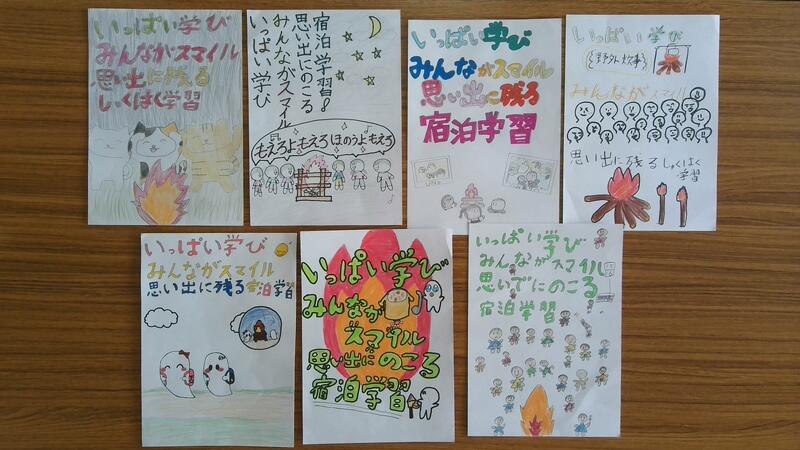 いっぱい学び
みんながスマイル
思い出に残る
しくはく学習
宿泊学習!
思い出にのこる
みんながスマイル
いっぱい学び
もえろよもえろ ほのうよもえろ
いっぱい学び
みんながスマイル
思い出に残る
宿泊学習
いっぱい学び
野外炊事
みんながスマイル
思い出に残るしゅくはく
学習
いっぱい学び
みんながスマイル
思い出に残る宿泊学習
いっぱい学び
みんなが
スマイル
思い出にのこる
宿泊学習
いっぱい学び
みんながスマイル
思いでにのこる
宿泊学習